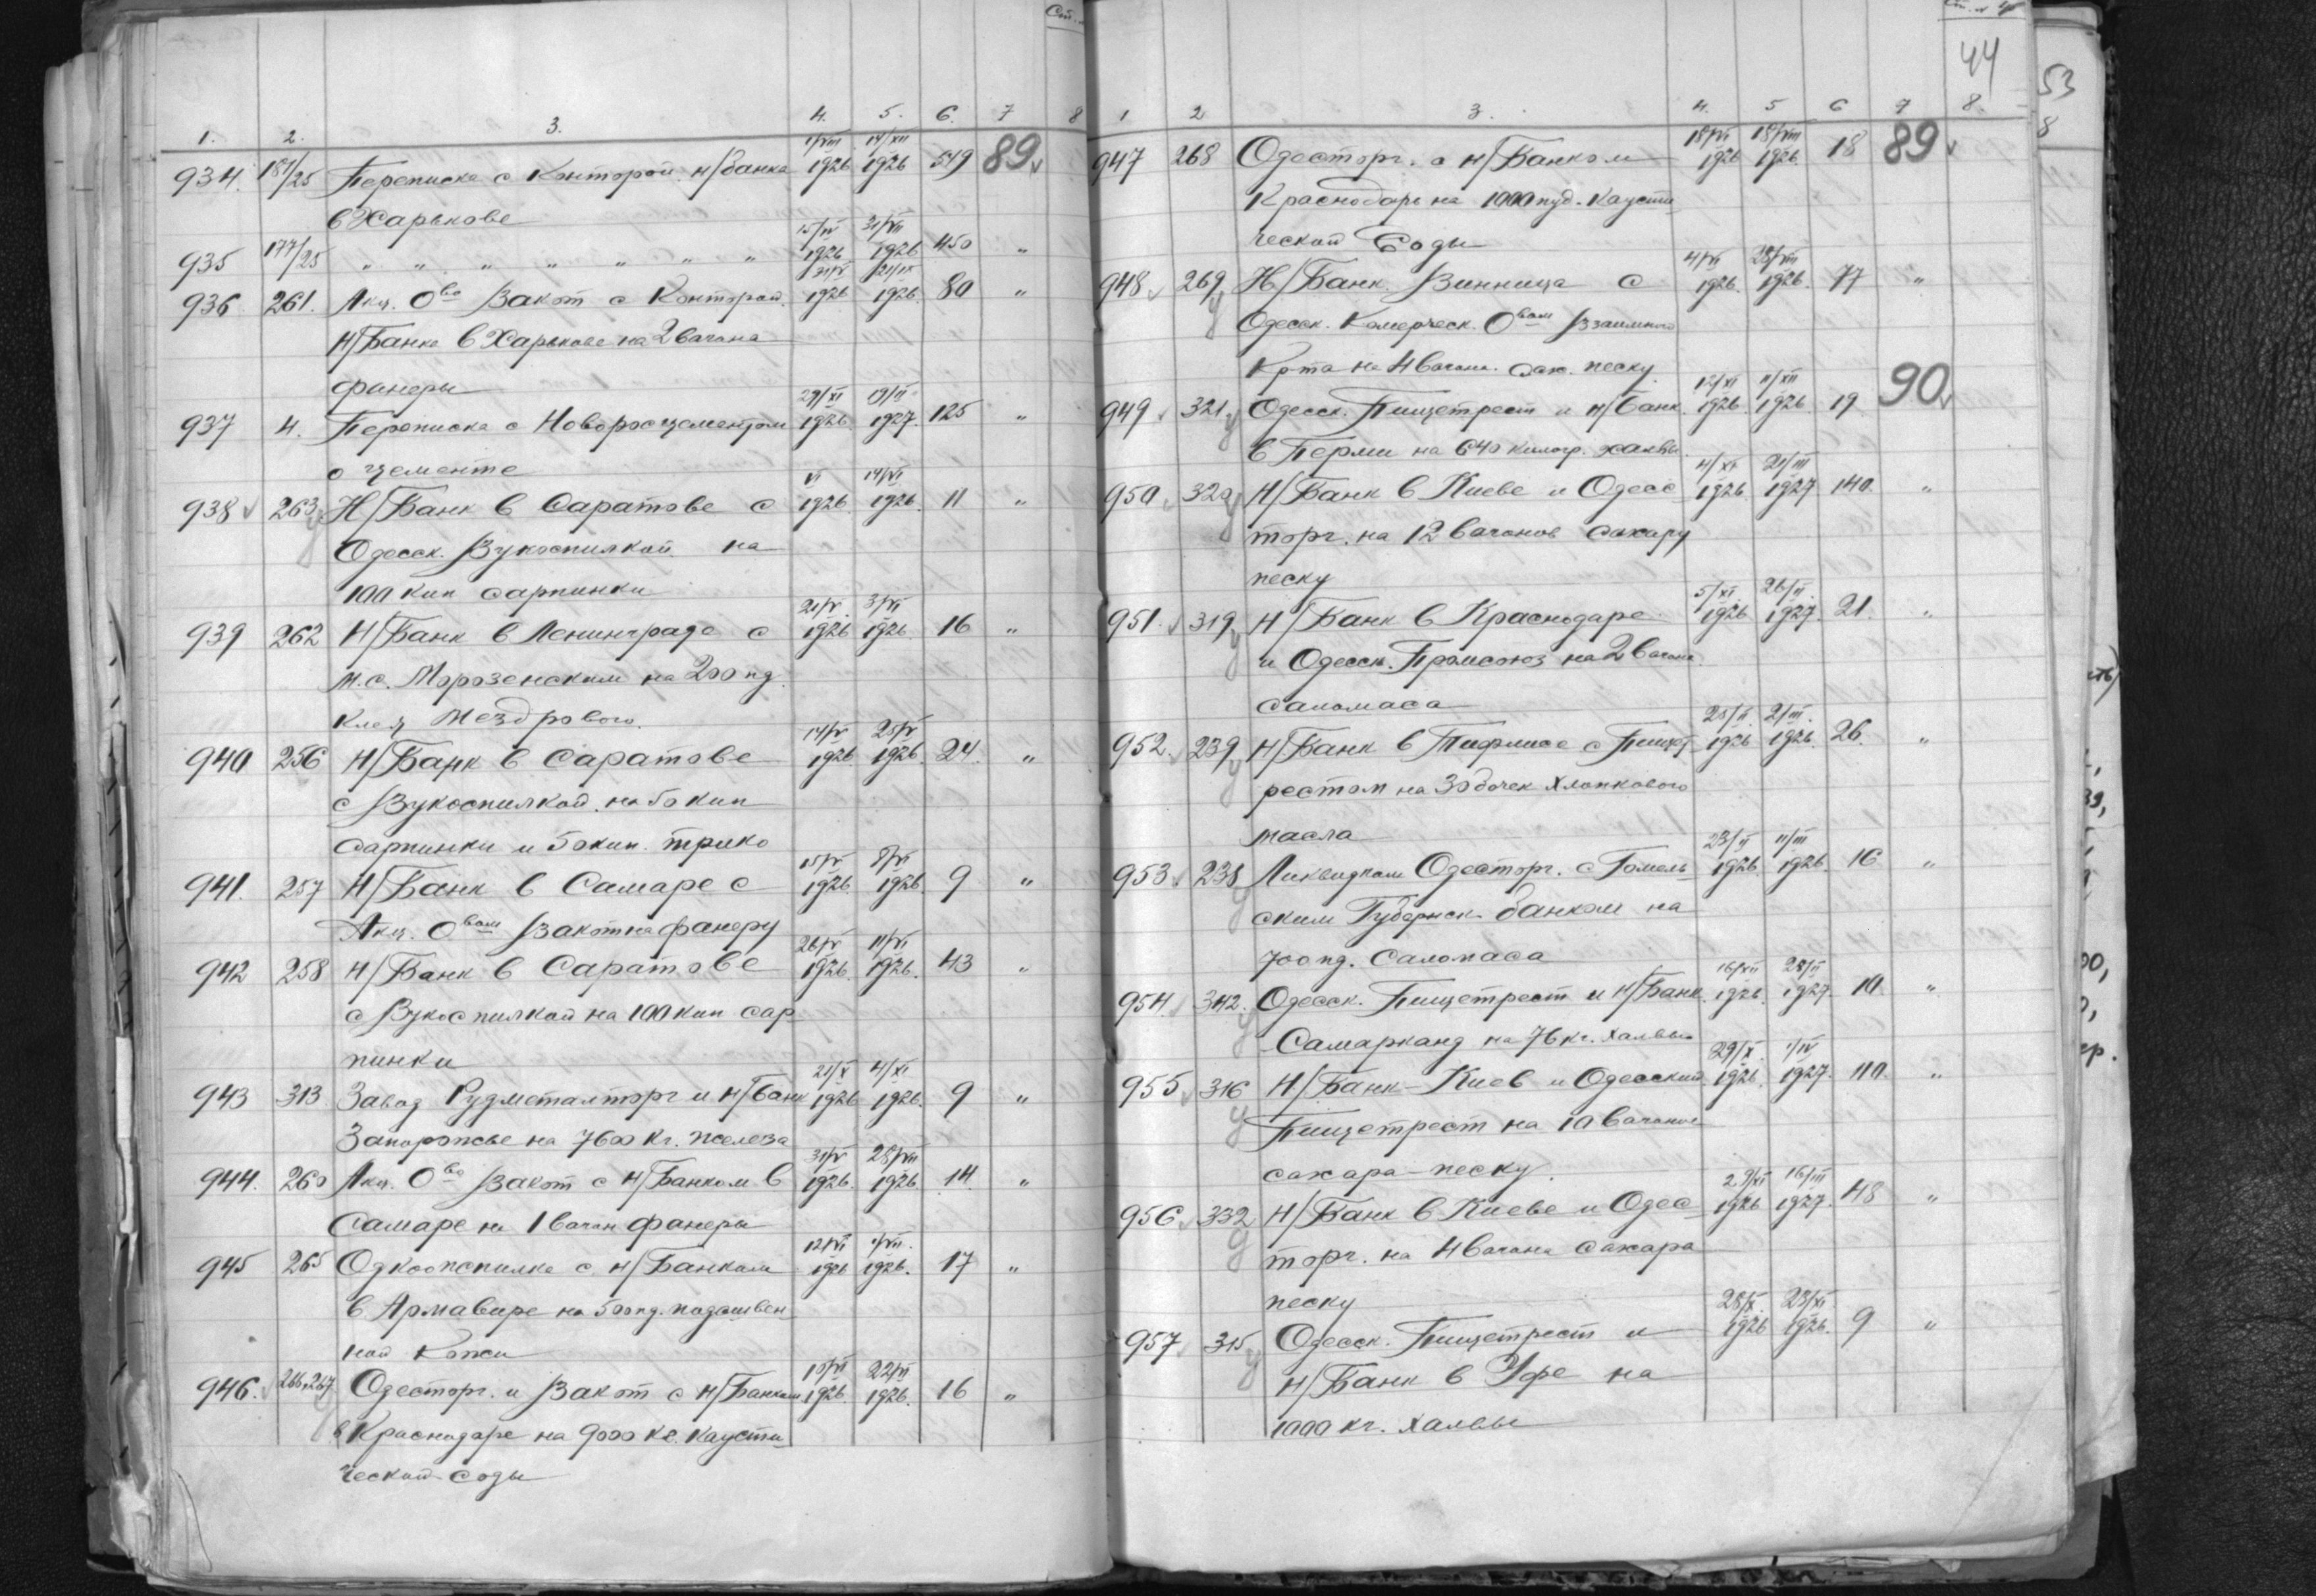 Ст.
1. 2. 3. 4. 5. 6. 7 8
934. 181/25 Переписка с Конторой Н/Банка 1/VIII 1926 14/XII 1926 549 89
в Харькове
935 177/25 " " " " " " " 15/IV 1926 31/VII 1926 450 "
936 261. Акц. О-во Закот с Конторой 1926. 1926. 80 "
Н/Банка в Харькове на 2 вагона
фанеры
937 4. Переписка с Новоросцементом 29/XI 1926. 1927. 125 "
о цементе
938 263 Н/Банк в Саратове с VI 1926. 14/VI 1926. 11 "
Одесск. Вукоспилкой на
100 кип сарпинки
939 262 Н/Банк в Ленинграде с 21/V. 1926 3/VI 1926. 16 "
М.С. Морозенским на 200 пд.
клея Мездрового.
940 256 Н/Банк в Саратове 14/V 1926. 25/V 1926. 24. "
с Вукоспилкой на 50 кип
сарпинки и 50 кип. трико
941. 257 Н/Банк в Самаре с 15/V 1926. 8/VI 1926. 9 "
Акц. О-вом Закот на фанеру
942 258 Н/Банк в Саратове 26/V 1926. 11/VI 1926. 43 "
с Вукоспилкой на 100 кип сар-
пинки
943 313 Завод Рудметалторг и Н/Банк 21/X 1926 4/XI 1926. 9 "
Запорожье на 7600 кг. железа
944. 260 Акц. О-во Закот с Н/Банком в 31/V 1926. 28/VIII 1926. 14. "
Самаре на 1 вагон фанеры
945 265 Одкоопспилка с Н/Банком 12/VI 1926 1/VII. 1926. 17 "
в Армавире на 500 пд. подошвен-
ной кожи
946. 266,267 Одесторг. и Закот с Н/Банком 1926. 1926. 16 "
в Краснодаре на 9000 кг. каусти-
ческой соды
44
1 2 3. 4. 5 6 7 8.
947 268 Одесторг. с Н/Банком 18/VI 1926 18/VIII 1926. 18 89
Краснодарь на 1000 пуд. каусти-
ческой Соды
948. 269 Н/Банк. Винница с 4/VI 1926. 28/VIII 1926. 77 "
Одесск. Комерческ. О-вом Взаимного
Кр-та на 4 вагона сах. песку.
949 321 Одесск. Пищетрест и Н/Банк 12/XI 1926. 11/XII 1926. 19 90
в Перми на 640 килогр. халвы.
950. 320 Н/Банк в Киеве и Одесс 4/XI 1926. 21/III 1927 140. "
торг. на 12 вагонов сахару
песку
951. 319 Н/Банк в Краснодаре 5/XI. 1926 26/II. 1927. 21. "
и Одесск. Промсоюз на 2 вагона
саломаса
952. 239 Н/Банк в Тифлисе с Пищет- 1926 2/III. 1926. 26. "
рестом на 30 бочек хлопкового
масла
953 238 Ликвидком Одесторг. с Гомель- 23/II 1926. 11/III 1926. 16 "
ским Губернск. банком на
700 пд. Саломаса
954. 342. Одесск. Пищетрест и Н/Банк 16/XII 1926. 28/II 1927. 10. "
Самарканд на 76 кг. халвы
955 316 Н/Банк - Киев и Одесский 29/X. 1926. 1/IV 1927. 110. "
Пищетрест на 10 вагонов
сахара-песку.
956. 332 Н/Банк в Киеве и Одес- 1926 16/III 1927. 48 "
торг. на 4 вагона сахара
песку
957 315 Одесск. Пищетрест и 28/X. 1926 23/XI. 1926. 9 "
Н/Банк в Уфе на
1000 кг. халвы
53
8